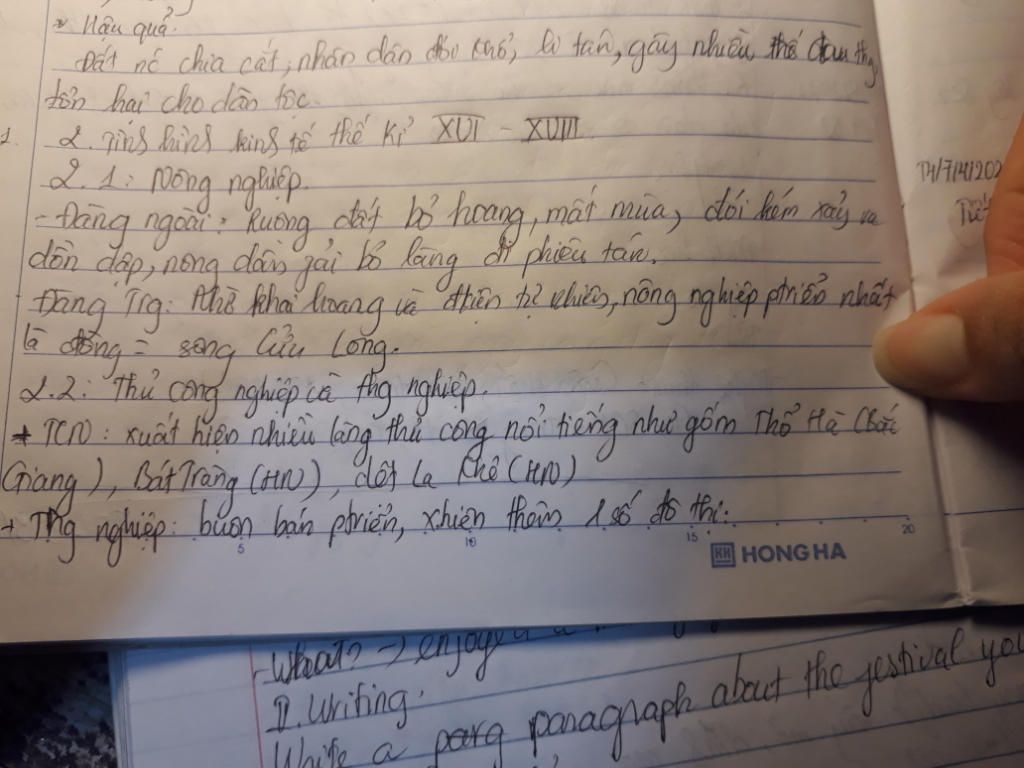 * Hậu quả.
Đất nc chia cắt, nhân dân đói khổ, li tán, gây nhiều thế
tổn hại cho dân tộc.
2. Tình hình kinh tế thế kỉ XVI - XVIII
2.1: Nông nghiệp.
- Đàng ngoài: Ruộng đất bỏ hoang, mất mùa, đói kém xảy ra
dồn dập, nông dân phải bỏ làng đi phiêu tán.
Đàng Trg: Nhờ khai hoang và điện tự nhiên, nông nghiệp ptriển nhất
là đồng = sông Cửu Long.
2.2: Thủ công nghiệp và thg nghiệp.
+ TCN: xuất hiện nhiều làng thủ công nổi tiếng như gốm Thổ Hà (Bắc
Giang), Bát Tràng (HN), dệt La Khê (HN)
+ Thg nghiệp: buôn bán ptriển, xhiện thêm 1 số đô thị.
5 10 15 20
HONG HA
T4/7/4/202
- What? -> enjoyed a
II. Writing.
Write a parg paragraph about the festival you